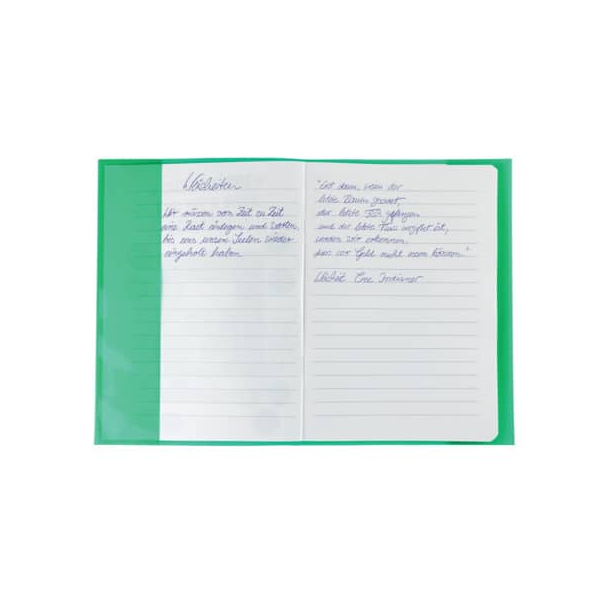 Weisheiten
Wir müssen von Zeit zu Zeit
eine Rast einlegen und warten,
bis uns unsere Seelen wieder
eingeholt haben.
"Erst dann, wenn der
letzte Baum gerodet,
der letzte Fluß gefangen
und der letzte Fluss vergiftet ist,
werden wir erkennen,
dass wir Geld nicht essen können."
Weisheit Cree Indianer